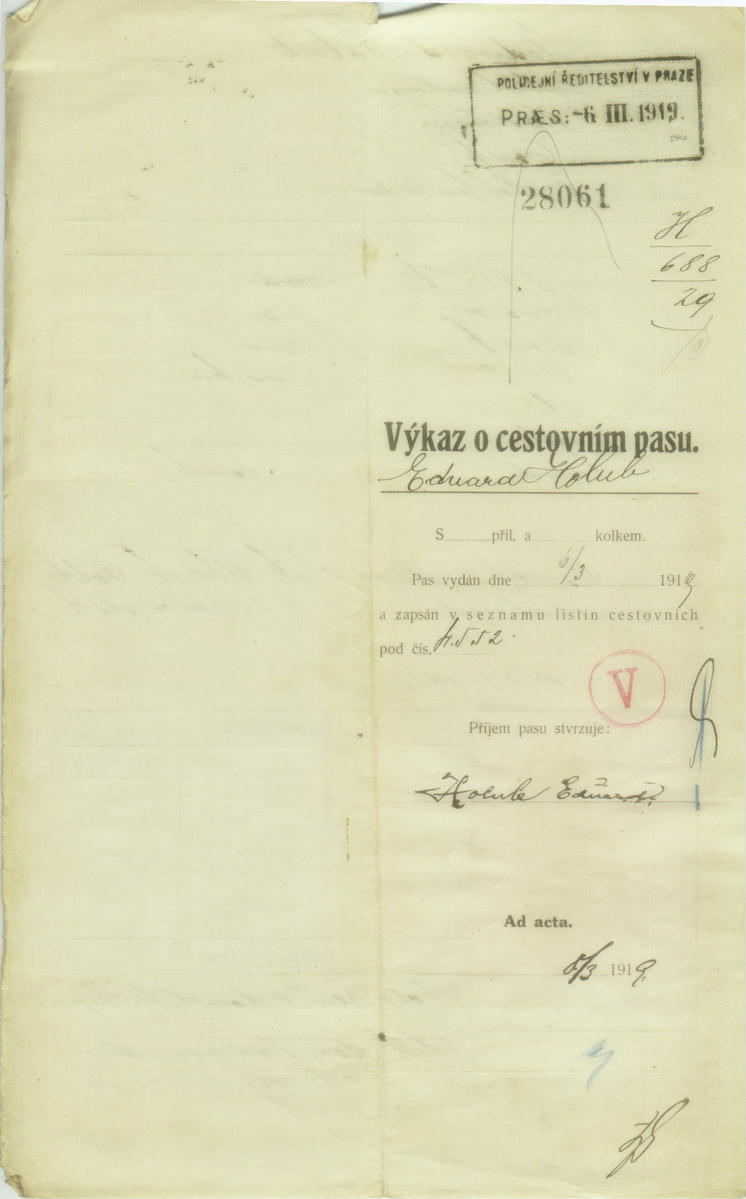 POLICEJNÍ ŘEDITELSTVÍ V PRAZE
PRÆS: -6 III. 1919.
28061
H
688
29
Výkaz o cestovním pasu.
Eduard Holub
S příl. a kolkem.
Pas vydán dne 6/3 1919
a zapsán v seznamu listin cestovních
pod čís.
V
Příjem pasu stvrzuje:
Holub Eduard.
Ad acta.
1919.